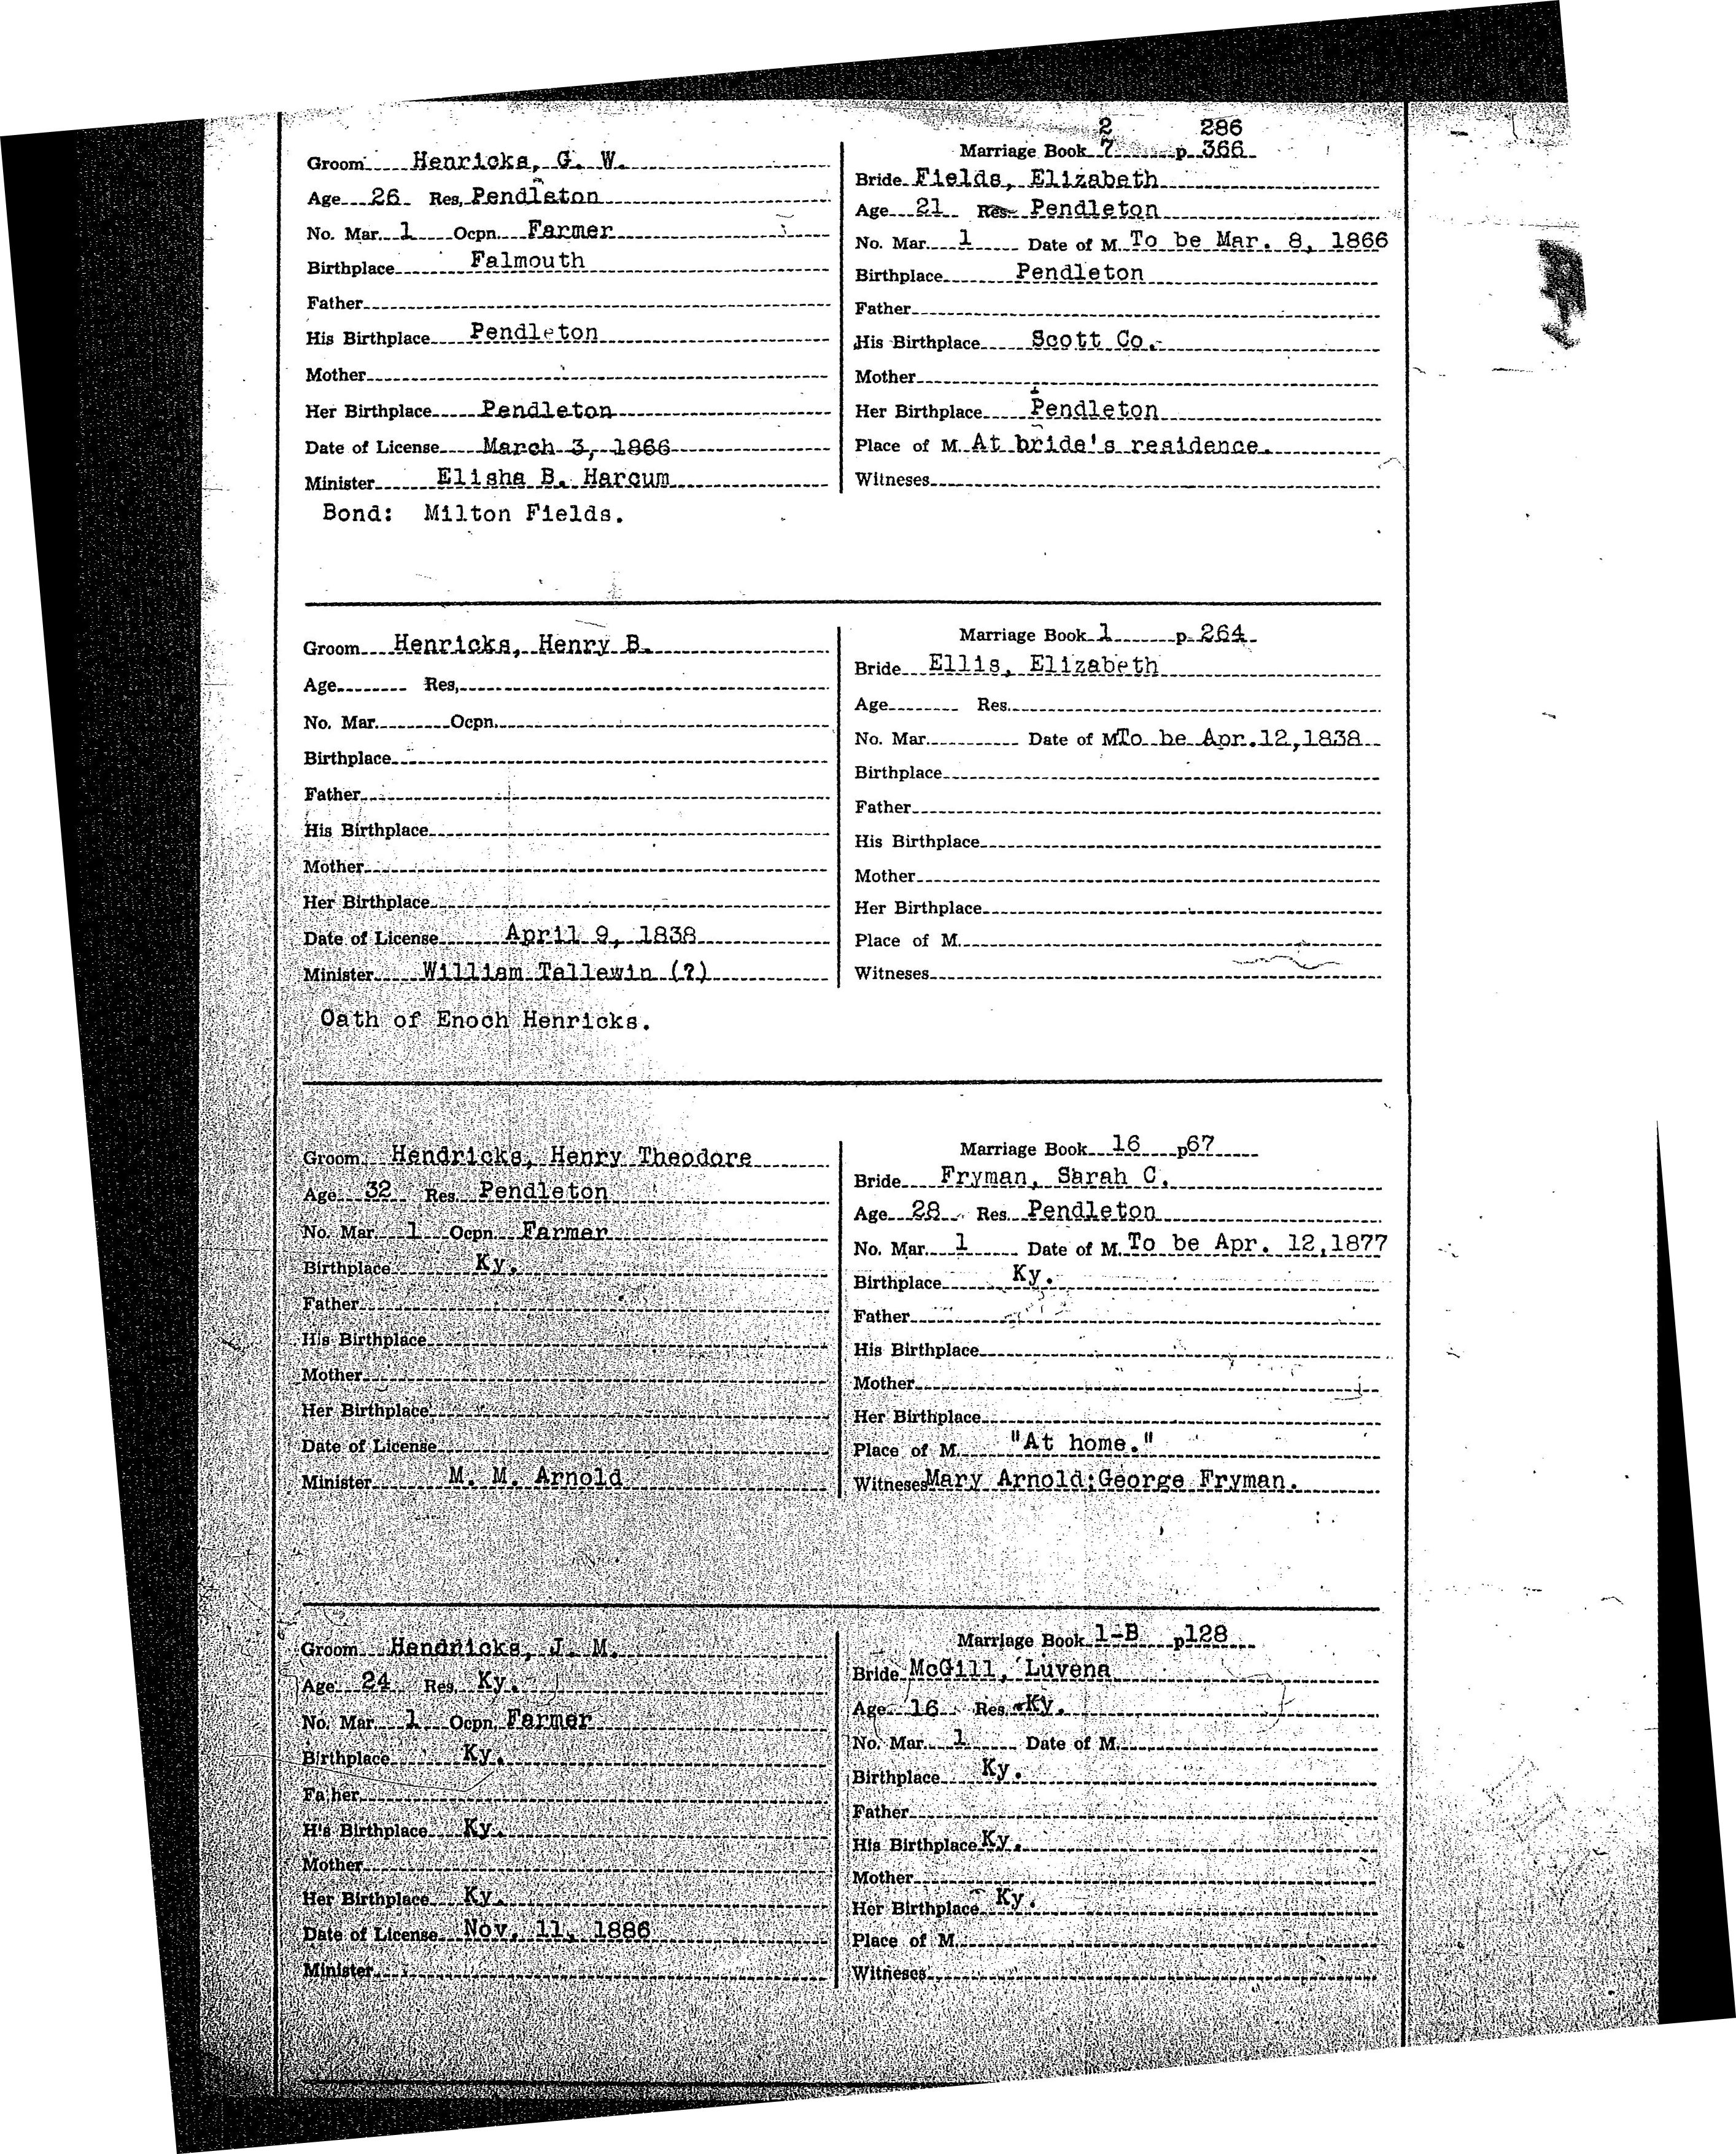 Groom Henricks, G. W.
Age 26 Res. Pendleton
No. Mar. 1 Ocpn. Farmer
Birthplace Falmouth
Father
His Birthplace Pendleton
Mother
Her Birthplace Pendleton
Date of License March 3, 1866
Minister Elisha B. Harcum
Bond: Milton Fields.
2 286
Marriage Book 7 p. 366
Bride Fields, Elizabeth
Age 21 Res. Pendleton
No. Mar. 1 Date of M. To be Mar. 8, 1866
Birthplace Pendleton
Father
His Birthplace Scott Co.
Mother
Her Birthplace Pendleton
Place of M. At bride's residence.
Witneses
Groom Henricks, Henry B.
Age Res.
No. Mar. Ocpn.
Birthplace
Father
His Birthplace
Mother
Her Birthplace
Date of License April 9, 1838
Minister William Tallewin (?)
Oath of Enoch Henricks.
Marriage Book 1 p. 264
Bride Ellis, Elizabeth
Age Res.
No. Mar. Date of M To be Apr.12,1838
Birthplace
Father
His Birthplace
Mother
Her Birthplace
Place of M.
Witneses
Groom Hendricks, Henry Theodore
Age 32 Res. Pendleton
No. Mar. 1 Ocpn. Farmer
Birthplace Ky.
Father
His Birthplace
Mother
Her Birthplace
Date of License
Minister M. M. Arnold
Marriage Book 16 p 67
Bride Fryman, Sarah C.
Age 28 Res. Pendleton
No. Mar. 1 Date of M. To be Apr. 12,1877
Birthplace Ky.
Father
His Birthplace
Mother
Her Birthplace
Place of M. "At home."
Witneses Mary Arnold;George Fryman.
Groom Hendricks, J. M.
Age 24 Res. Ky.
No. Mar. 1 Ocpn. Farmer
Birthplace Ky.
Father
His Birthplace Ky.
Mother
Her Birthplace Ky.
Date of License Nov. 11, 1886
Minister
Marriage Book 1-B p 128
Bride McGill, Luvena
Age 16 Res. Ky.
No. Mar. 1 Date of M.
Birthplace Ky.
Father
His Birthplace Ky.
Mother
Her Birthplace Ky.
Place of M.
Witneses